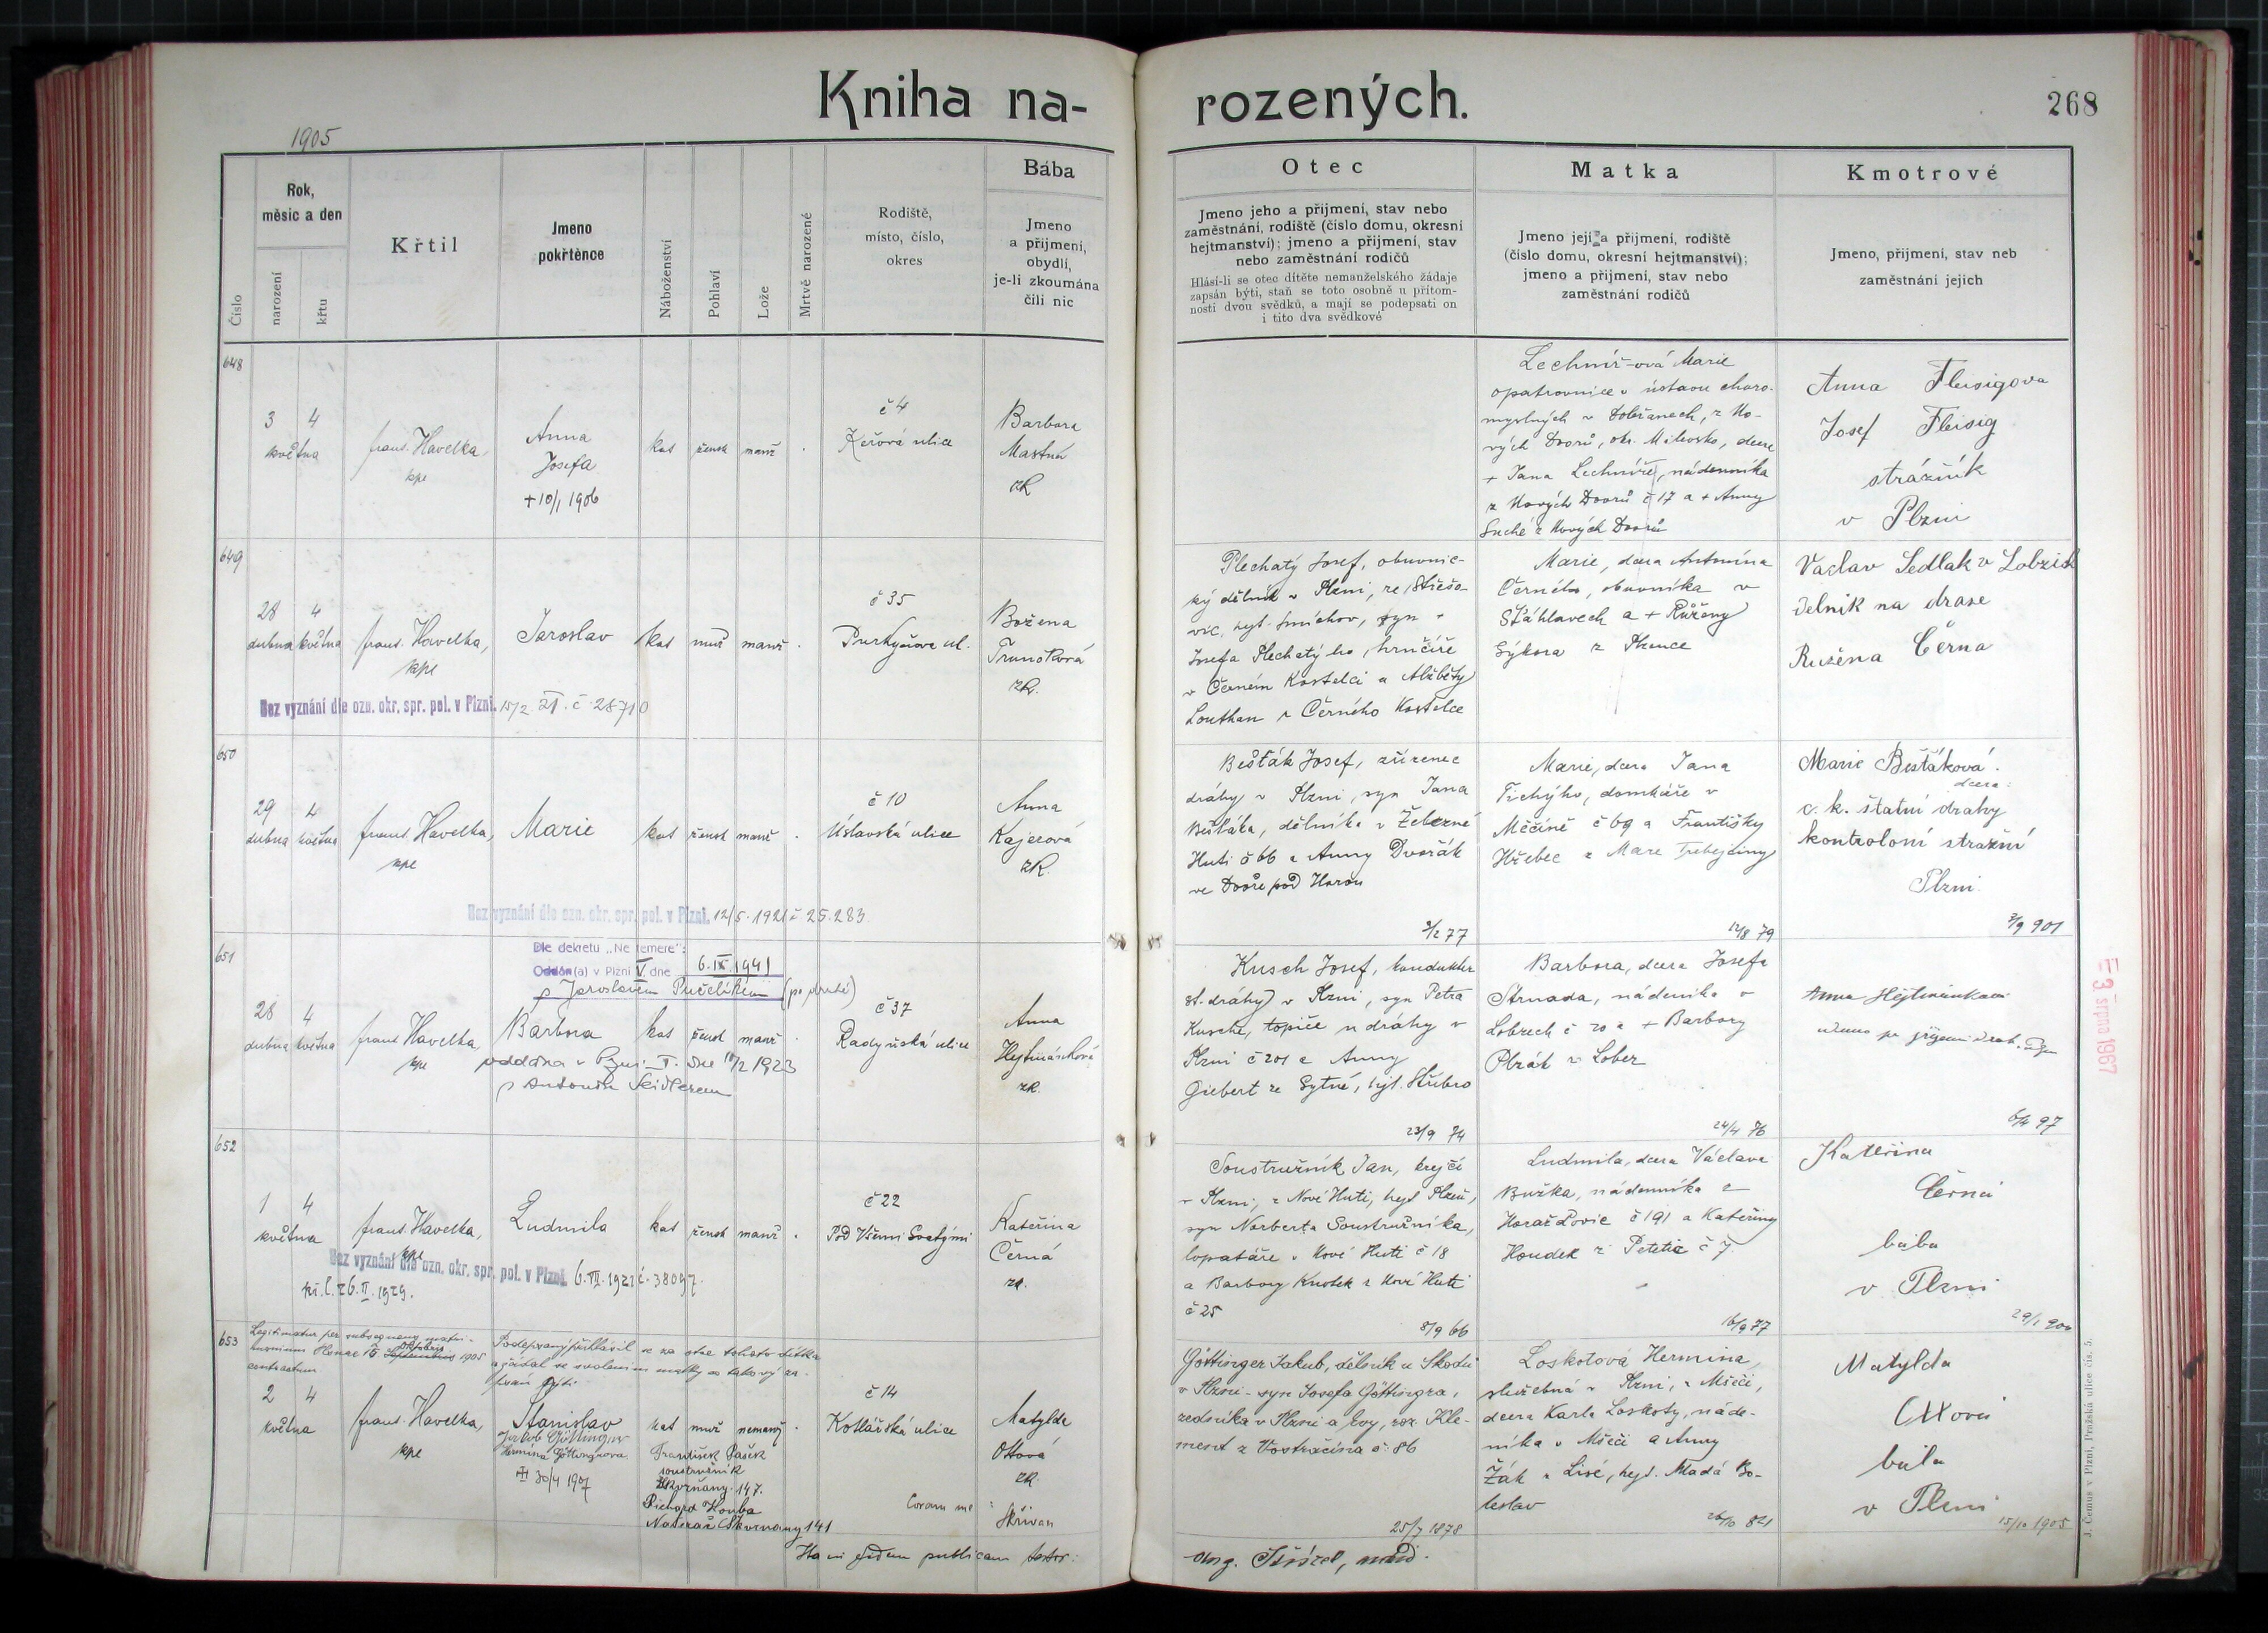 Kniha na-
rozených.
268
1905
Číslo
Rok,
měsíc a den
narození
křtu
Křtil
Jmeno
pokřtěnce
Náboženství
Pohlaví
Lože
Mrtvě narozené
Rodiště,
místo, číslo,
okres
Bába
Jmeno
a přijmení,
obydlí,
je-li zkoumána
čili nic
Otec
Jmeno jeho a přijmení, stav nebo
zaměstnání, rodiště (číslo domu, okresní
hejtmanství); jmeno a přijmení, stav
nebo zaměstnání rodičů
Hlásí-li se otec dítěte nemanželského žádaje
zapsán býti, staň se toto osobně u přítom-
nosti dvou svědků, a mají se podepsati on
i tito dva svědkové
Matka
Jmeno její a přijmení, rodiště
(číslo domu, okresní hejtmanství);
jmeno a přijmení, stav nebo
zaměstnání rodičů
Kmotrové
Jmeno, přijmení, stav neb
zaměstnání jejich
648
3 4
května
frant. Havelka,
kpl
Anna
Josefa
+ 10/1 1906
kat žensk manž .
č 4
ulice
Barbora
Mastná
zk
Lechníř-ová Marie
opatrovnice v ústavu choro-
myslných v Dobřanech, z No-
vých Dvorů, okr. Milevsko, dcera
+ Jana Lechníře, nádenníka
z Nových Dvorů č 17 a + Anny
Suché z Nových Dvorů
Anna Fleisigova
Josef Fleisig
strážník
v Plzni
649
28 4
dubna května
frant. Havelka,
kpl
Jaroslav
kat muž manž .
č 35
Purkyňova ul.
Božena
Trunctková
zk.
Bez vyznání dle ozn. okr. spr. pol. v Plzni. 15/2. 21. č. 28710
Plechatý Josef, obuvnic-
ký dělník v Plzni, ze Střešo-
vic, hejt. Smíchov, syn +
Josefa Plechatého, hrnčíře
v Černém Kostelci a Alžběty
Louthan z Černého Kostelce
Marie, dcera Antonína
Černého, obuvníka v
Štáhlavech a + Růženy
Sýkora z Plzence
Vaclav Sedlak v Lobzích
delnik na draze
Ružena Černa
650
29 4
dubna května
frant. Havelka,
kpl
Marie
kat žensk manž .
č 10
Úslavská ulice
Anna
Kajerová
zk.
Bez vyznání dle ozn. okr. spr. pol. v Plzni. 12/5. 1921 č. 25.283.
Bešťák Josef, zřízenec
dráhy v Plzni, syn Jana
Bešťáka, dělníka v Železné
Huti č 66 a Anny Dvořák
ve Dvoře pod Horou
2/2 77
Marie, dcera Jana
Tichýho, domkáře v
Měčíně č 69 a Františky
Hřebec z Mare
12/8 79
Marie Bešťáková.
dcera:
c. k. štatní drahy
kontroloní
Plzni.
3/9 901
651
Dle dekretu „Ne temere":
Oddán(a) v Plzni V. dne 6.IX.1941
s Jaroslavem Pučelíkem (po druhé)
28 4
dubna května
frant. Havelka,
kpl
Barbora
kat žensk manž .
oddána v Plzni V. dne 10/2 1923
s Antonín Seidlerem
č 37
Radyňská ulice
Anna
Hejtmánková
zk.
Kusch Josef, konduktér
st. dráhy v Plzni, syn Petra
Kusche, topiče u dráhy v
Plzni č 201 a Anny
Giebert ze Sytné, hejt. Stříbro
23/9 74
Barbora, dcera Josefa
Strnada, nádeníka v
Lobzech č 20 a + Barbory
Plzák z Lobez
24/4 76
Anna Hejtmánkova
6/4 97
- 3 srpna 1967
652
1 4
května
frant. Havelka,
kpl
Ludmila
kat žensk manž .
č 22
Pod Všemi Svatými
Kateřina
Černá
zk.
Bez vyznání dle ozn. okr. spr. pol. v Plzni. 6. VII. 1921 č. 38097.
26. II. 1929.
Soustružník Jan, krejčí
v Plzni, z Nové Huti, hejt Plzeň,
syn Norberta Soustružníka,
lopatáře v Nové Huti č 18
a Barbory Knotek z Nové Huti
č 25
8/9 66
Ludmila, dcera Václava
Bužka, nádenníka z
Horažďovic č 191 a Kateřiny
Houdek z Petetic č 7.
16/9 77
Kateřina
Černá
bába
v Plzni
29/1 900
653
Legitimatur per subsequens matri-
monium Plsnae 15 Septembris Oktobris 1905
contractum
Podepsaný přihlásil se za otce tohoto dítka
a žádal se svolením matky za takový za-
psán býti.
2 4
května
frant. Havelka,
kpl
Stanislav
Jakob Göttinger
Hermína Göttingrova
30/4 1907
kat muž nemanž .
František Pašek
soustružník
Skvrňany 147.
Richard Houba
Natěrač Skvrnany 141
č 14
Kotlářská ulice
Matylda
Ottová
zk.
Coram me:
Skřivan
Göttinger Jakub, dělník u Škodů
v Plzni - syn Josefa Göttingra,
zedníka v Plzni a Evy, roz. Kle-
ment z Vostračína č. 86
25/7 1878
Loskotová Hermina,
služebná v Plzni, z Mšeči,
dcera Karla Loskoty, náde-
níka v Mšeči a Anny
Žák z Lisé, hejt. Mladá Bo-
leslav
26/10 821
Matylda
Ottová
bába
v Plzni
15/10 1905
Ita in fidem publicam testor:
J. Čemus v Plzni, Pražská ulice čís. 5.